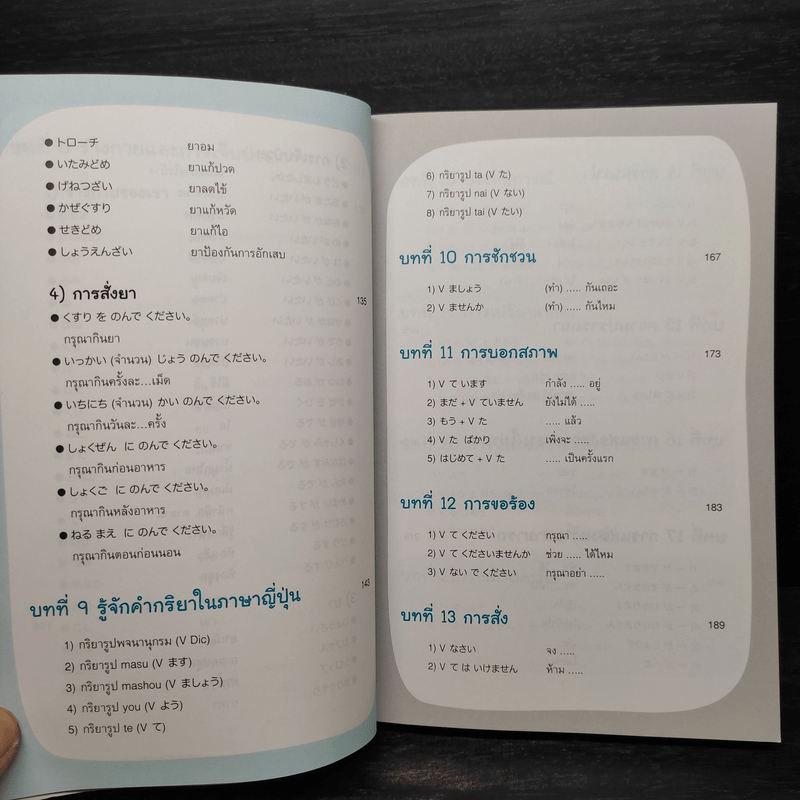 ● トローチ ยาอม
● いたみどめ ยาแก้ปวด
● げねつざい ยาลดไข้
● かぜぐすり ยาแก้หวัด
● せきどめ ยาแก้ไอ
● しょうえんざい ยาป้องกันการอักเสบ
4) การสั่งยา 135
● くすり を のんで ください。
กรุณากินยา
● いっかい (จำนวน) じょう のんで ください。
กรุณากินครั้งละ...เม็ด
● いちにち (จำนวน) かい のんで ください。
กรุณากินวันละ...ครั้ง
● しょくぜん に のんで ください。
กรุณากินก่อนอาหาร
● しょくご に のんで ください。
กรุณากินหลังอาหาร
● ねる まえ に のんで ください。
กรุณากินตอนก่อนนอน
บทที่ 9 รู้จักคำกริยาในภาษาญี่ปุ่น 143
1) กริยารูปพจนานุกรม (V Dic)
2) กริยารูป masu (V ます)
3) กริยารูป mashou (V ましょう)
4) กริยารูป you (V よう)
5) กริยารูป te (V て)
6) กริยารูป ta (V た)
7) กริยารูป nai (V ない)
8) กริยารูป tai (V たい)
บทที่ 10 การชักชวน 167
1) V ましょう (ทำ) ..... กันเถอะ
2) V ませんか (ทำ) ..... กันไหม
บทที่ 11 การบอกสภาพ 173
1) V て います กำลัง ..... อยู่
2) まだ + V ていません ยังไม่ได้ .....
3) もう + V た ..... แล้ว
4) V た ばかり เพิ่งจะ .....
5) はじめて + V た ..... เป็นครั้งแรก
บทที่ 12 การขอร้อง 183
1) V て ください กรุณา .....
2) V て くださいませんか ช่วย ..... ได้ไหม
3) V ない で ください กรุณาอย่า .....
บทที่ 13 การสั่ง 189
1) V なさい จง .....
2) V て は いけません ห้าม .....